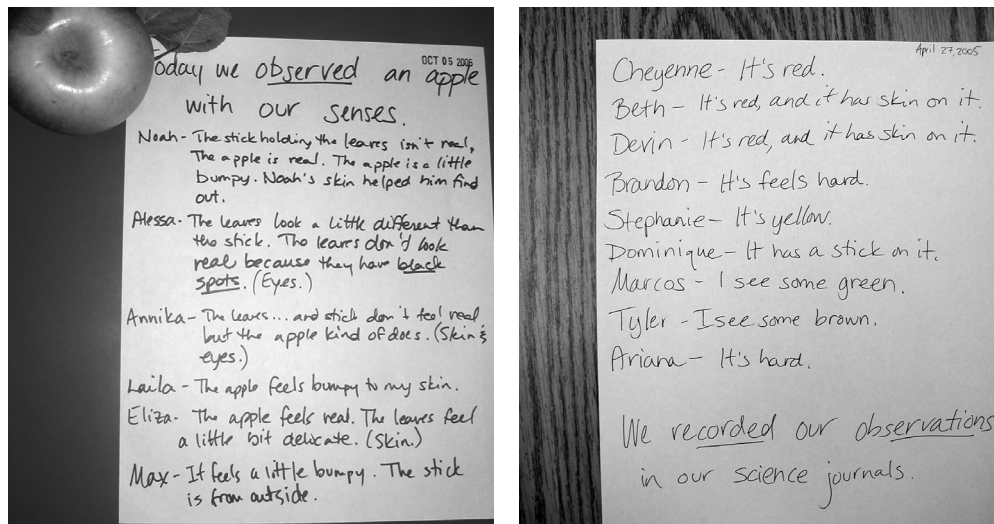 Today we observed an apple
OCT 05 2006
with our senses.
Noah - The stick holding the leaves isn't real,
The apple is real. The apple is a little
bumpy. Noah's skin helped him find
out.
Alessa - The leaves look a little different than
the stick. The leaves don't look
real because they have black
spots. (Eyes.)
Annika - The leaves... and stick don't feel real
but the apple kind of does. (Skin &
eyes.)
Laila - The apple feels bumpy to my skin.
Eliza - The apple feels real. The leaves feel
a little bit delicate. (Skin.)
Max - It feels a little bumpy. The stick
is from outside.
April 27, 2005
Cheyenne - It's red.
Beth - It's red, and it has skin on it.
Devin - It's red, and it has skin on it.
Brandon - It's feels hard.
Stephanie - It's yellow.
Dominique - It has a stick on it.
Marcos - I see some green.
Tyler - I see some brown.
Ariana - It's hard.
We recorded our observations
in our science journals.